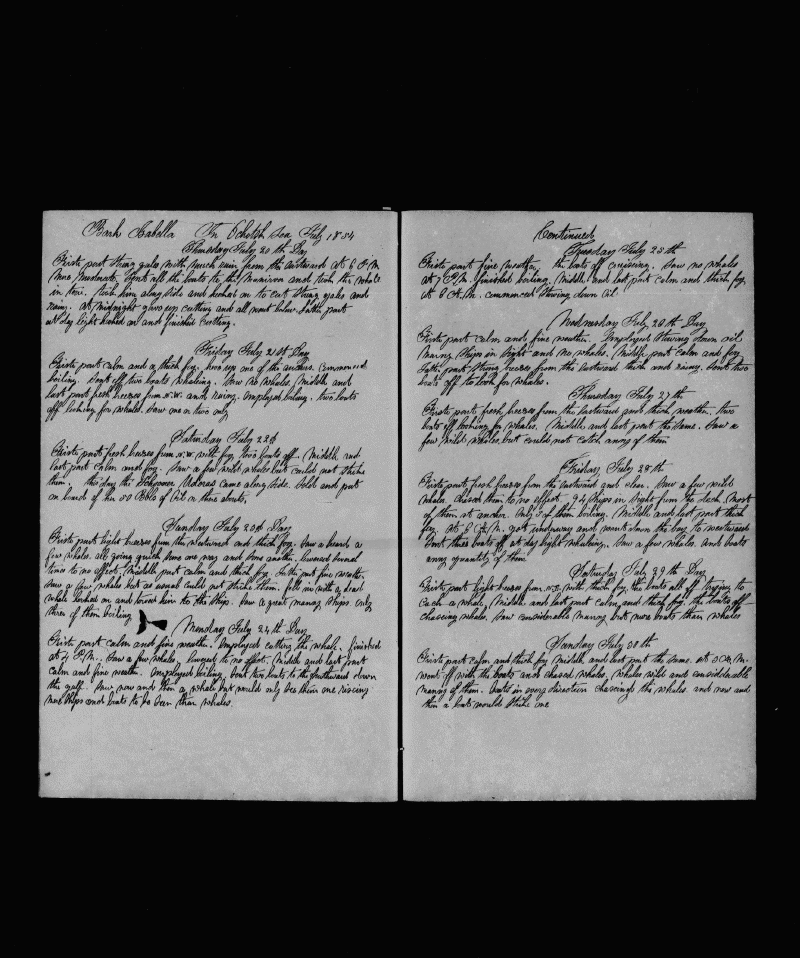 Bark Isabella In Ochotsk Sea July 1854
Thursday July 20 th Day
Firste part strong gales with much rain from the eastward at 6 P.M
more moderate. Sent all the boats to the and took the whale
in tow. took him along side and hooked on to cut strong gales and
rainy. at midnight gave up cutting and all went below. Latter part
at day light hooked on and finished cutting.
Friday July 21st Day
Firste part calm and a thick fog. hove up one of the anchors. commenced
boiling. Sent off two boats whaling. Saw no whales. Middle and
last part fresh breezes from N.W. and rainy. employed boiling. two boats
off looking for whales. Saw one or two only
Saturday July 22d
Firste part fresh breezes from N.W. with fog. two boats off. Middle and
last part calm and fog. Saw a few wild whales but could not strike
them. this day the Schooner came along side. Sold and put
on board of her 50 Bbls of Oil or there abouts.
Sunday July 23d Day
Firste part light breezes from the westward and thick fog. Saw & heard a
few whales. all going quick some one way and some another. lowered several
times to no effect. Middle part calm and thick fog. Latter part fine weather
saw a few whales but as usual could not strike them. fell in with a dead
whale hooked on and towed him to the ship. Saw a great many ships only
three of them boiling
Monday July 24 th Day
Firste part calm and fine weather. employed cutting the whale. finished
at 4 P.M. Saw a few whales, lowered to no effect. Middle and last part
calm and fine weather. employed boiling. Sent two boats to the Eastward down
the gulf. Saw now and then a whale but would only see him one rising
more ships and boats to be seen than whales.
Continued
Tuesday July 25 th
Firste part fine weather, the boats off cruising. Saw no whales
at 7 P.M. finished boiling. Middle and last part calm and thick fog.
at 6 A.M. commenced stowing down Oil.
Wednesday July 26 th Day
Firste part calm and fine weather. Employed stowing down oil
Many ships in sight and no whales. Middle part calm and fog
Latter part strong breezes from the eastward thick and rainy. Sent two
boats off to look for whales.
Thursday July 27 th
Firste part fresh breezes from the Eastward and thick weather. two
boats off looking for whales. Middle and last part the same. Saw a
few wild whales, but could not catch any of them
Friday July 28 th
Firste part fresh breezes from the eastward and clear. Saw a few wild
whales chased them to no effect. 94 ships in sight from the deck. most
of them at anchor. Only 3 of them boiling. Middle and last part thick
fog. at 6 A.M. got underway and went down the bay to westward
Sent three boats off at day light whaleing. Saw a few whales. and boats
any quantity of them
Saturday July 29 th Day
Firste part light breezes from N.E. with thick fog, the boats all off trying to
catch a whale, Middle and last part calm and thick fog. the boats off
chaseing whales. Saw considerable many but more boats than whales
Sunday July 30 th
Firste part calm and thick fog Middle and last part the same. at 3 A.M.
went off with the boats and chased whales, whales wild and considerable
many of them. boats in every direction chaseing the whales. and now and
then a boats would strike one